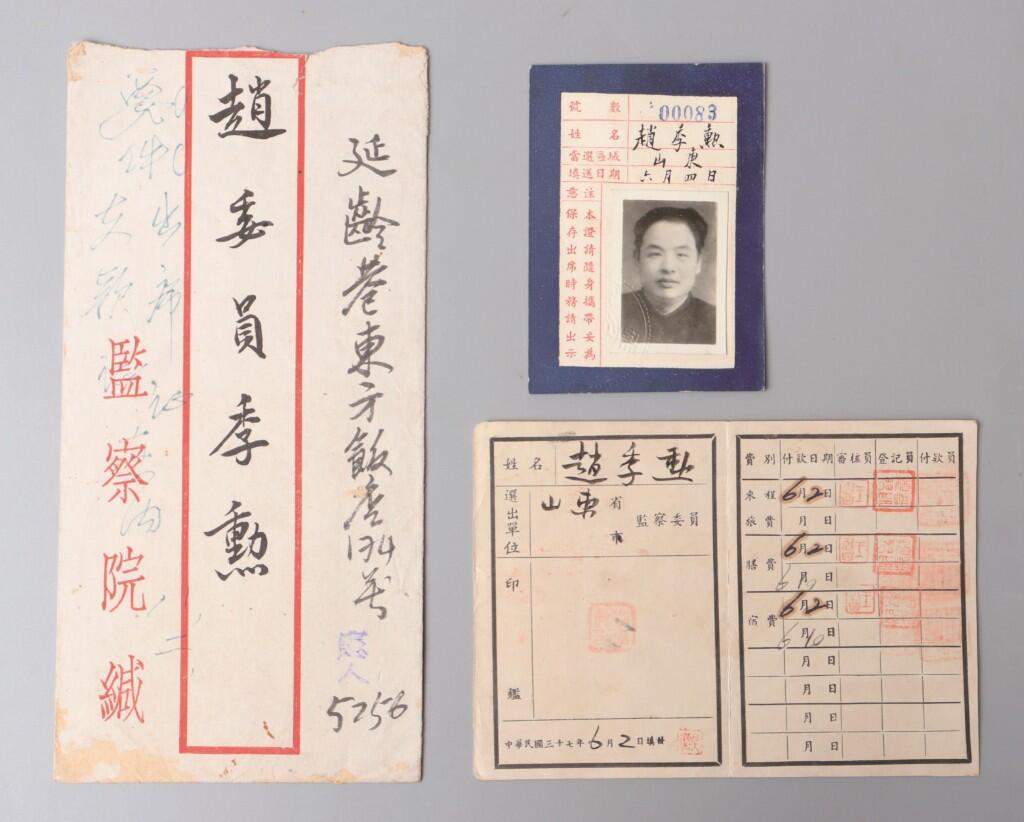 延齡巷東方飯店174号
5256
趙委員季勳
監察院緘
出席証
號數 00083
姓名 趙季勳
當選區域 山東
填送日期 六月四日
注意
本證請隨身攜帶妥為
保存出席時務請出示
姓名 趙季勳
選出單位 山東 省市 監察委員
印鑑
中華民國三十七年6月2日填發
費別 付款日期 審核員 登記員 付款員
來程旅費 6月2日
月日
膳費 6月2日
6月10日
宿費 6月2日
6月10日
月日
月日
月日
月日